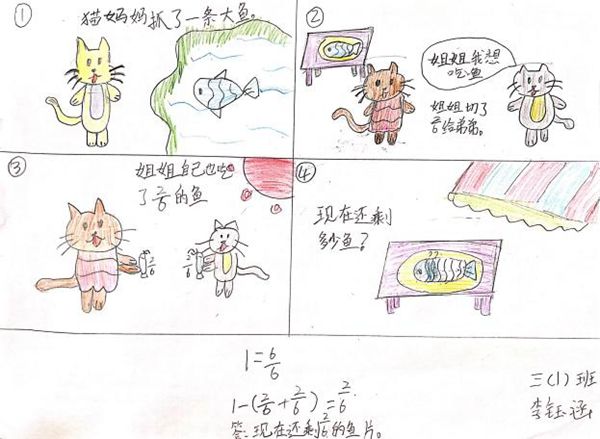 ①
猫妈妈抓了一条大鱼。
②
姐姐我想
吃鱼
姐姐切了
2/6给弟弟。
③
姐姐自己也吃
了2/6的鱼
2/6
2/6
④
现在还剩
多少鱼？
1=6/6
1-(2/6+2/6)=2/6
答:现在还剩2/6的鱼片。
三(1)班
李钰涵